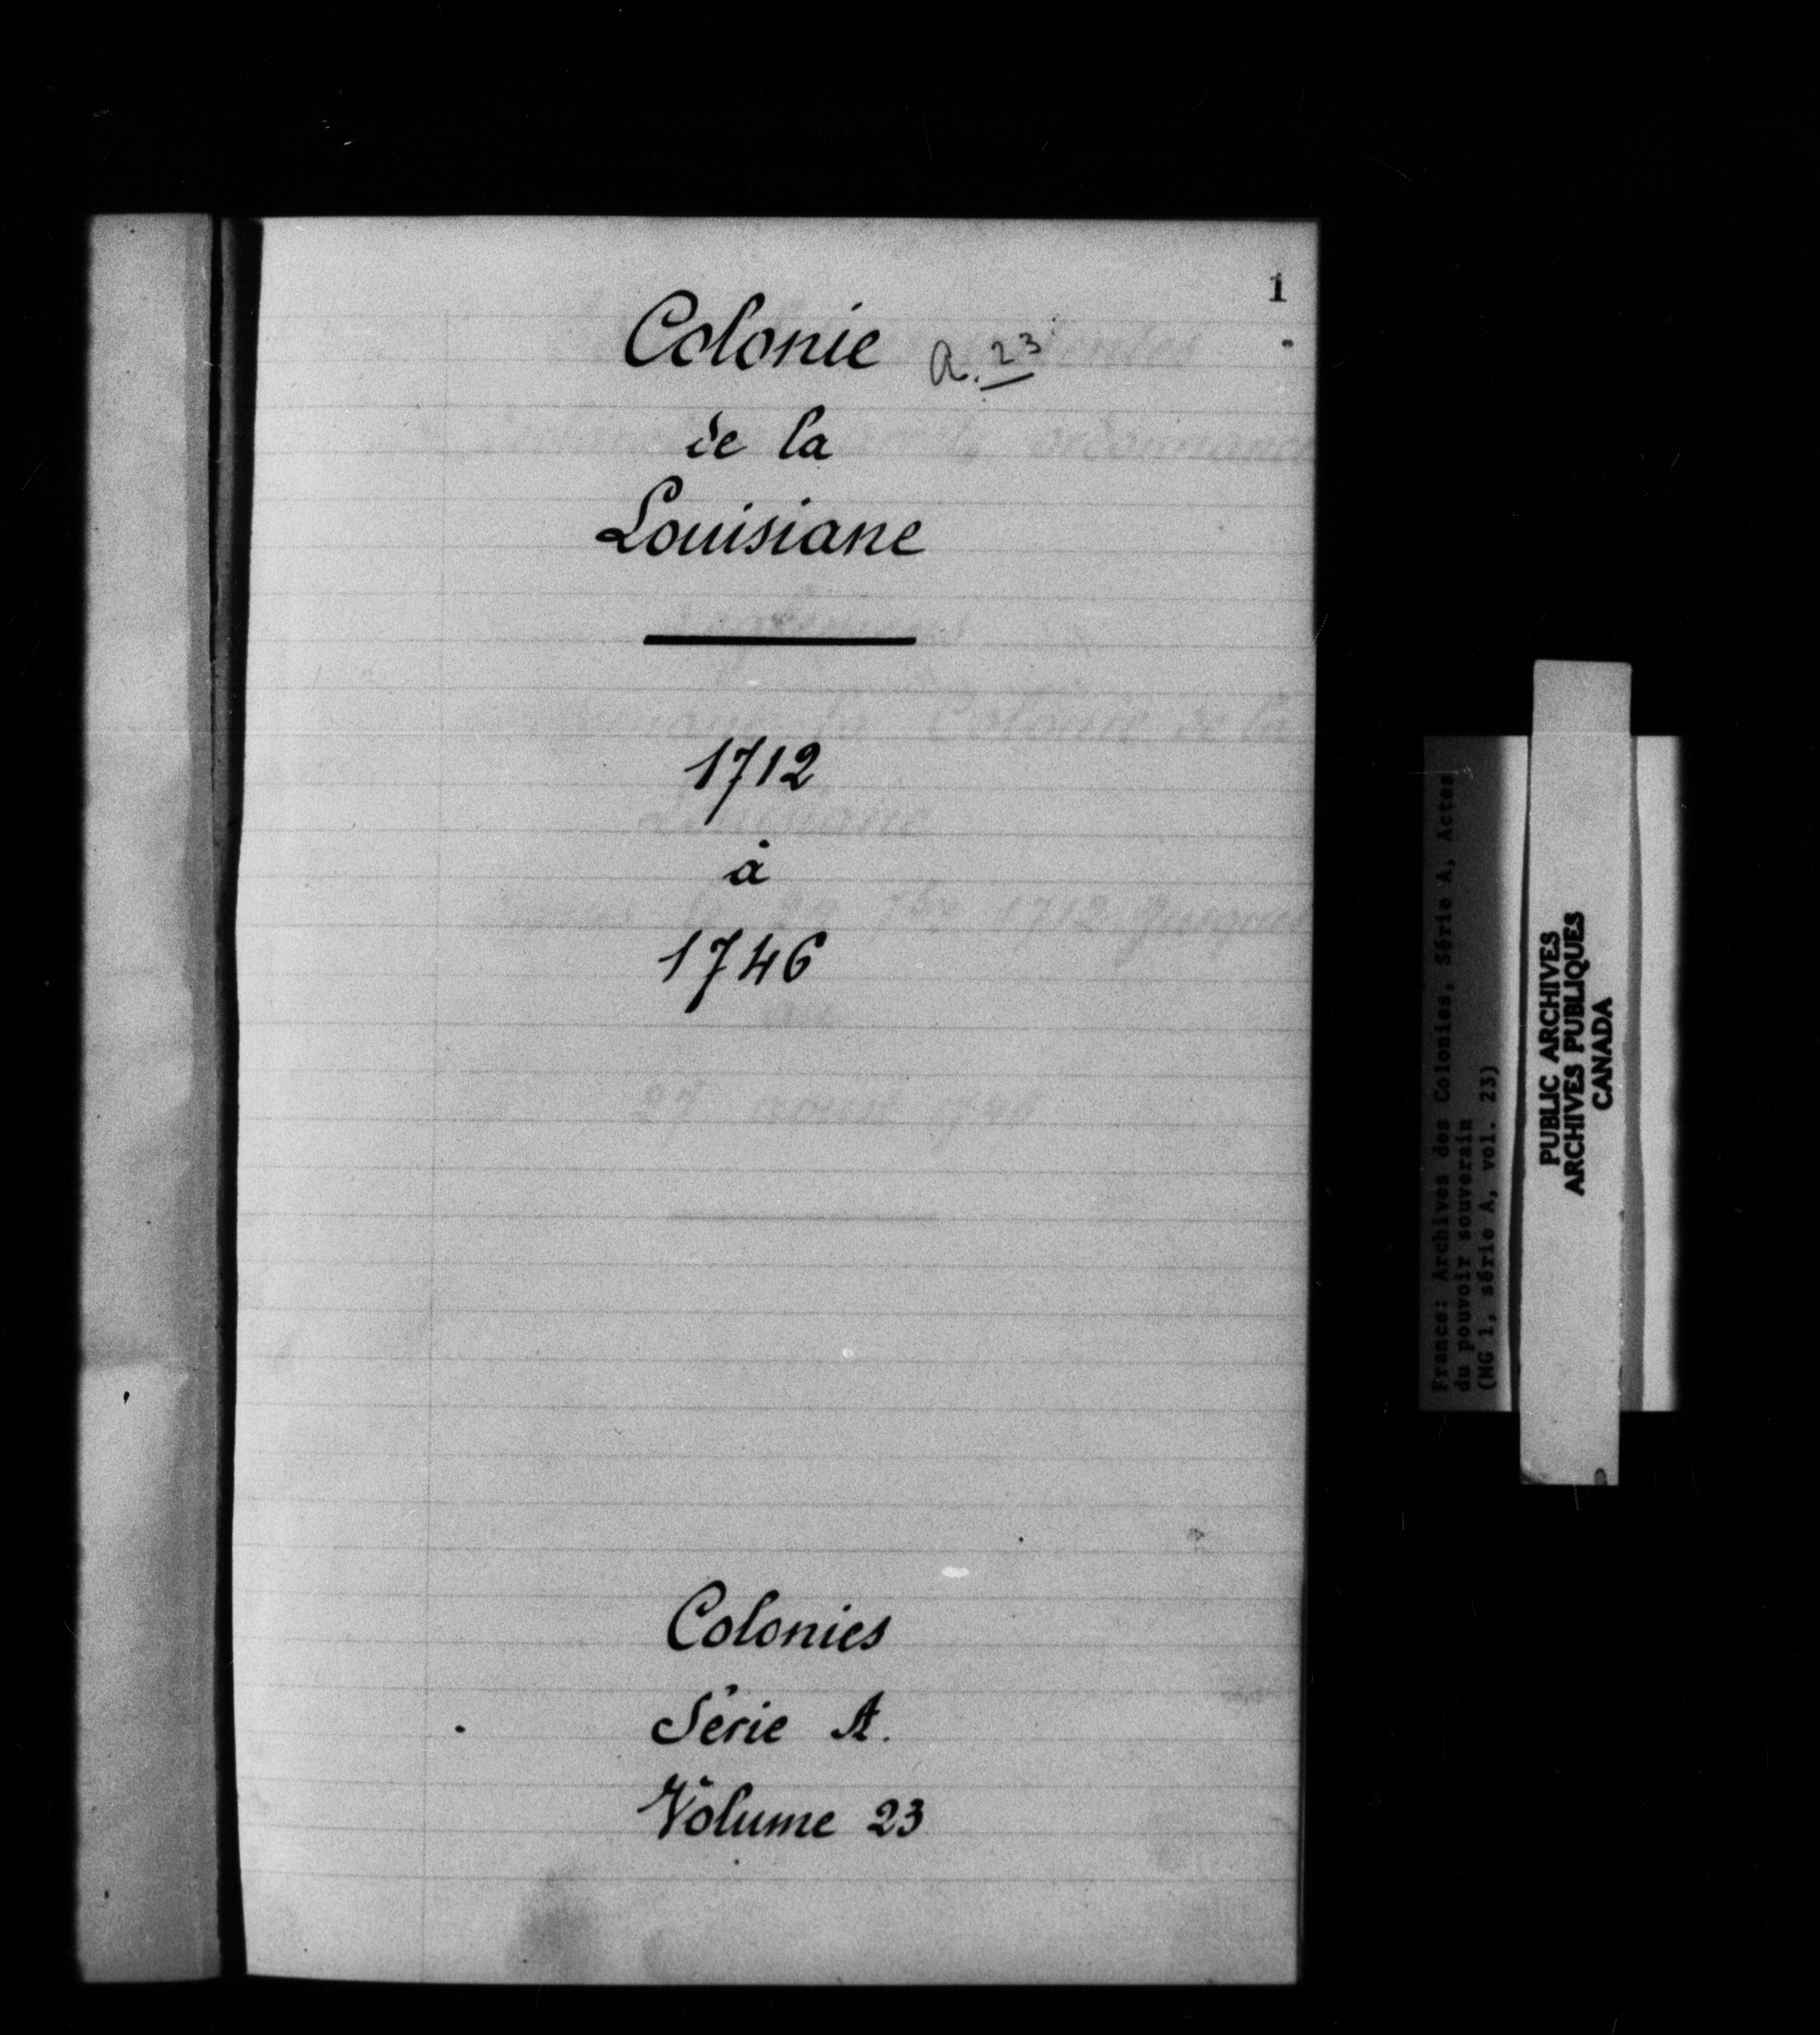 1
Colonie a. 23
de la
Louisiane
1712
à
1746
Colonies
Série A.
Volume 23
France: Archives des Colonies, Série A, Actes
du pouvoir souverain
(MG 1, série A, vol. 23)
PUBLIC ARCHIVES
ARCHIVES PUBLIQUES
CANADA